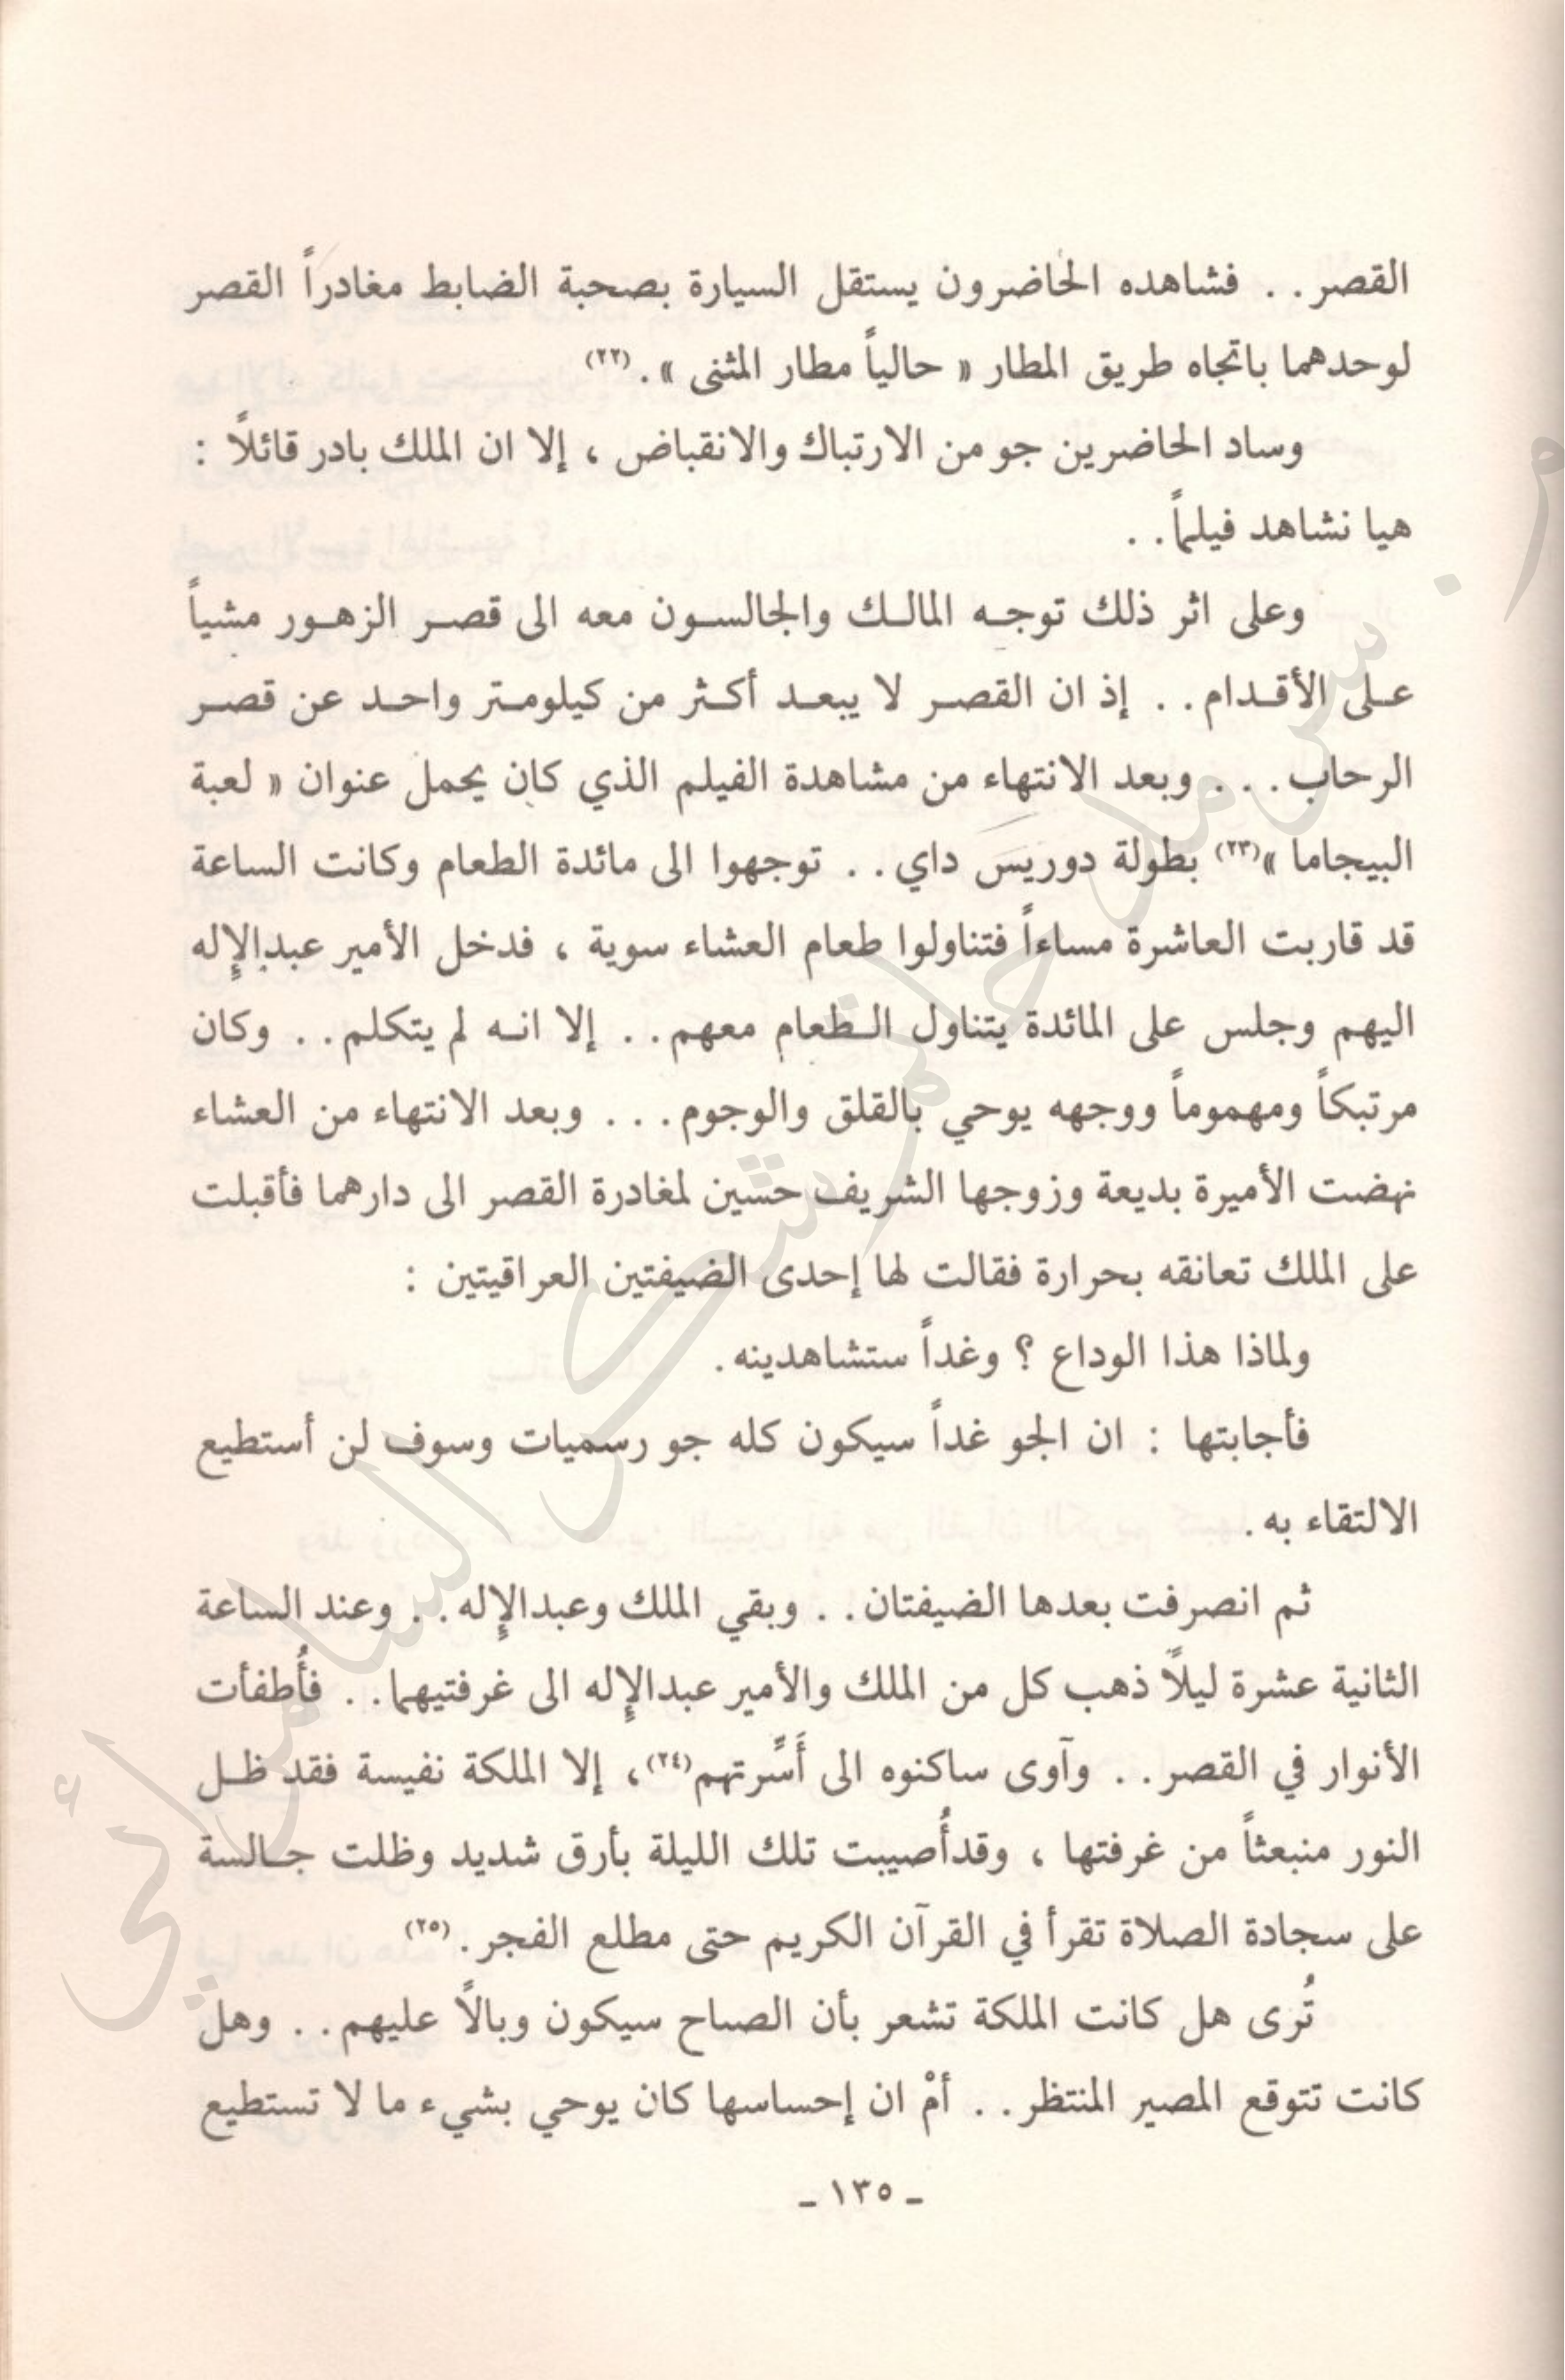 القصر . . فشاهده الحاضرون يستقل السيارة بصحبة الضابط مغادراً القصر
لوحدهما باتجاه طريق المطار « حالياً مطار المثنى » . (٢٢)
وساد الحاضرين جو من الارتباك والانقباض ، إلا ان الملك بادر قائلاً :
هيا نشاهد فيلماً . .
وعلى اثر ذلك توجـه المالـك والجالسـون معه الى قصـر الزهـور مشياً
عـلى الأقـدام . . إذ ان القصـر لا يبعـد أكـثر من كيلومـتر واحـد عن قصـر
الرحاب . . . وبعد الانتهاء من مشاهدة الفيلم الذي كان يحمل عنوان « لعبة
البيجاما »(٢٣) بطولة دوريسَ داي . . توجهوا الى مائدة الطعام وكانت الساعة
قد قاربت العاشرة مساءاً فتناولوا طعام العشاء سوية ، فدخل الأمير عبدالإِله
اليهم وجلس على المائدة يتناول الـطعام معهم . . إلا انـه لم يتكلم . . وكان
مرتبكاً ومهموماً ووجهه يوحي بالقلق والوجوم . . . وبعد الانتهاء من العشاء
نهضت الأميرة بديعة وزوجها الشريف حسين لمغادرة القصر الى دارهما فأقبلت
على الملك تعانقه بحرارة فقالت لها إحدى الضيفتين العراقيتين :
ولماذا هذا الوداع ؟ وغداً ستشاهدينه .
فأجابتها : ان الجو غداً سيكون كله جو رسميات وسوف لن أستطيع
الالتقاء به .
ثم انصرفت بعدها الضيفتان . . وبقي الملك وعبدالإِله . . وعند الساعة
الثانية عشرة ليلاً ذهب كل من الملك والأمير عبدالإِله الى غرفتيهما . . فأُطفأت
الأنوار في القصر . . وآوى ساكنوه الى أَسِّرتهم(٢٤) ، إلا الملكة نفيسة فقد ظـل
النور منبعثاً من غرفتها ، وقد أُصيبت تلك الليلة بأرق شديد وظلت جـالسة
على سجادة الصلاة تقرأ في القرآن الكريم حتى مطلع الفجر . (٢٥)
تُرى هل كانت الملكة تشعر بأن الصباح سيكون وبالاً عليهم . . وهل
كانت تتوقع المصير المنتظر . . أمْ ان إحساسها كان يوحي بشيء ما لا تستطيع
ـ ١٣٥ ـ